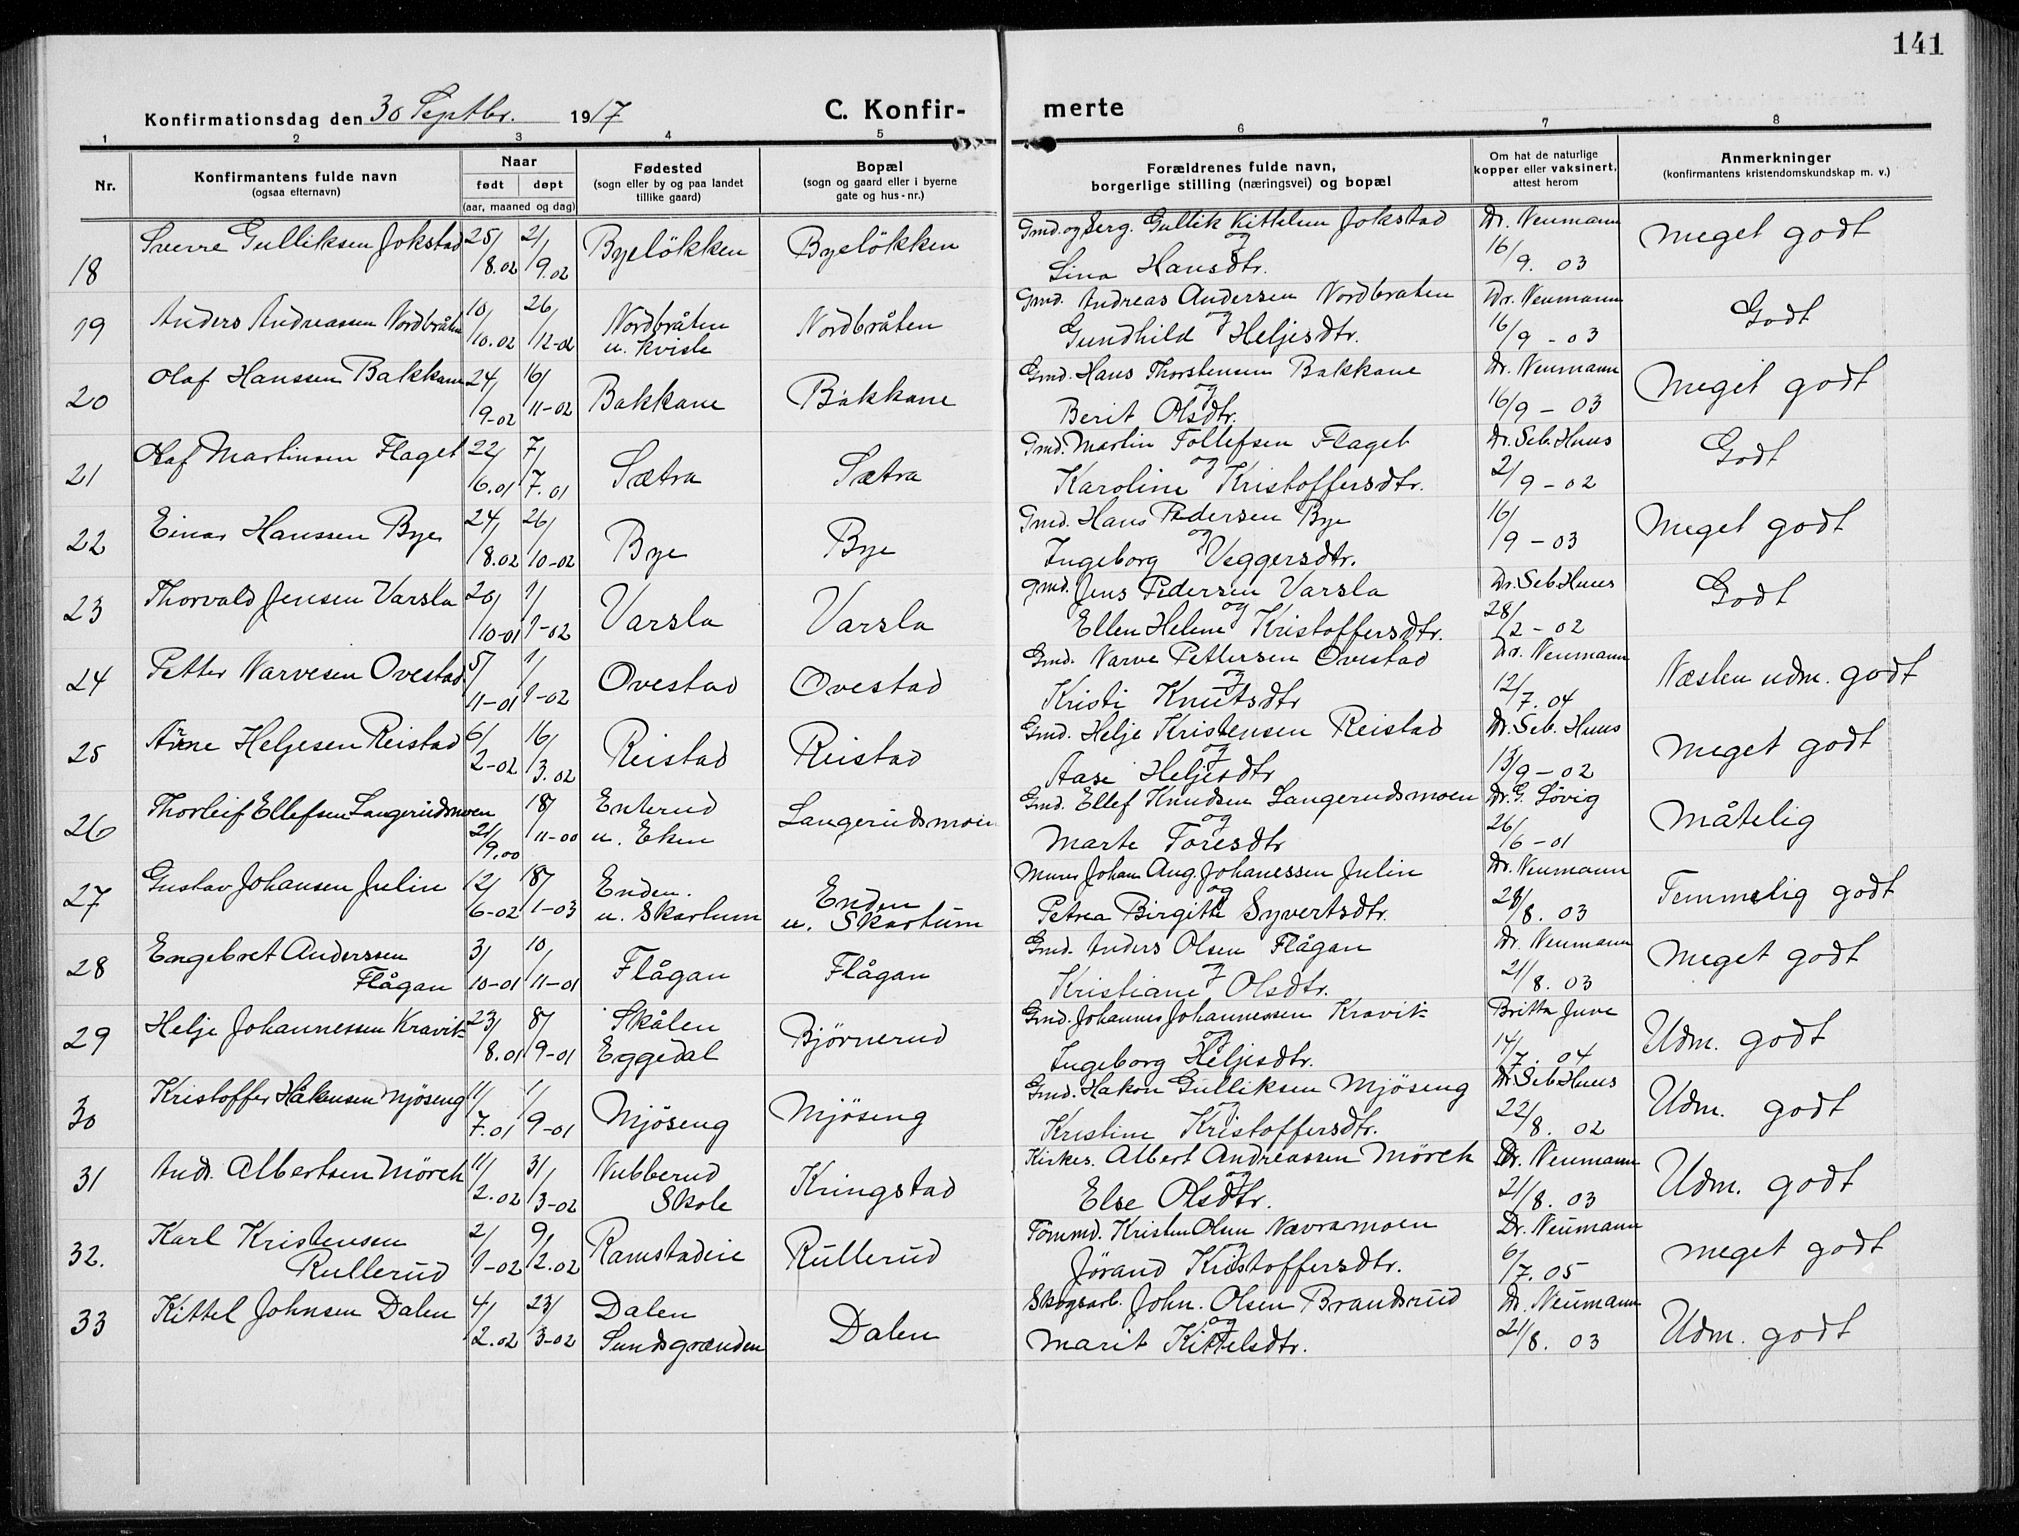 141
Konfirmationsdag den 30 Septbr. 1917
C. Konfir- merte
1 2 3 4 5 6 7 8
Nr.
Konfirmantens fulde navn
(ogsaa efternavn)
Naar
født døpt
(aar, maaned og dag)
Fødested
(sogn eller by og paa landet
tillike gaard)
Bopæl
(sogn og gaard eller i byerne
gate og hus-nr.)
Forældrenes fulde navn,
borgerlige stilling (næringsvei) og bopæl
Om hat de naturlige
kopper eller vaksinert,
attest herom
Anmerkninger
(konfirmantens kristendomskundskap m. v.)
18 Sverre Gulliksen Jokstad 25/8.02 21/9.02 Byeløkken Byeløkken
Gmd. og Serg. Gullik Kittelsen Jokstad
og
Lina Hansdtr.
Dr. Neumann
16/9. 03
Meget godt
19 Anders Andreassen Nordbråten 10/10.02 26/12-02 Nordbråten
u. Kvisle
Nordbråten
Gmd. Andreas Andersen Nordbraten
og
Gundhild Heljesdtr.
Dr. Neumann
16/9 - 03
Godt
20 Olaf Hanssen Bakkane 24/9-02 16/11-02 Bakkane Bakkane
Gmd. Hans Thorstensen Bakkane
og
Berit Olsdtr.
Dr. Neumann
16/9 - 03
Meget godt
21 Olaf Martinsen Flaget 22/6.01 7/7.01 Sætra Sætra
Gmd. Martin Tollefsen Flaget
og
Karoline Kristoffersdtr.
Dr. Seb. Huus
2/9 - 02
Godt
22 Einar Hanssen Bye 24/8.02 26/10-02 Bye Bye
Gmd. Hans Pedersen Bye
og
Ingeborg Veggersdtr.
16/9 - 03
Meget godt
23 Thorvald Jensen Varsla 20/10-01 1/1-02 Varsla Varsla
Gmd. Jens Pedersen Varsla
og
Ellen Helene Kristoffersdtr.
Dr. Seb. Huus
28/2 - 02
Godt
24 Petter Narvesen Ovestad 5/11-01 1/1-02 Ovestad Ovestad
Gmd. Narve Pettersen Ovestad
og
Kristi Knutsdtr
Dr. Neumann
12/7. 04
Næsten udm. godt
25 Arne Heljesen Reistad 6/2-02 16/3.02 Reistad Reistad
Gmd. Helje Kristensen Reistad
og
Aase Heljesdtr
Dr. Seb. Huus
13/9 - 02
Meget godt
26 Thorleif Ellefsen Langerudsmoen 21/9.00 18/11-00 Enterud
u. Eken
Langerudsmoen
Gmd. Ellef Knudsen Langerudsmoen
og
Marte Toresdtr
Dr. G. Løvig
26/6 - 01
Måtelig
27 Gustav Johansen Julin 12/6-02 18/1-03 Enden.
u. Skartum
Enden
u. Skartum
Murer Johan Aug. Johanessen Julin
og
Petrea Birgitte Syvertsdtr.
Dr. Neumann
28/8. 03
Temmelig godt
28 Engebret Anderssen
Flågan
3/10-01 10/11-01 Flågan Flågan
Gmd. Anders Olsen Flågan
og
Kristiane Olsdtr.
Dr. Neumann
21/8. 03
Meget godt
29 Helje Johannessen Kravik 23/8.01 8/9-01 Skålen
Eggedal
Bjørnerud
Gmd. Johannes Johannessen Kravik
og
Ingeborg Heljesdtr.
Britta Juve
14/7. 04
Udm. godt
30 Kristoffer Håkensen Mjøseng 11/7.01 1/9-01 Mjøseng Mjøseng
Gmd. Hakon Gulliksen Mjøseng
og
Kristine Kristoffersdtr.
Dr. Seb Huus
22/8. 02
Udm. godt
31 Andr. Albertsen Mörch 11/2.02 31/3-02 Nubberud
Skole
Kringstad
Kirkes. Albert Andreassen Mörch
og
Else Olsdtr.
Dr. Neumann
21/8. 03
Udm. godt
32. Karl Kristensen
Rullerud
2/1-02 9/2.02 Ramstadeie Rullerud
Tømmd. Kristen Olsen Nævramoen
og
Jörand Kristoffersdtr.
Dr. Neumann
6/7. 05
Meget godt
33 Kittel Johnsen Dalen 4/2.02 23/3-02 Dalen
Sundsgrænden
Dalen
Skogsarb. John. Olsen Brandsrud
og
Marit Kittelsdtr.
Dr. Neumann
21/8. 03
Udm. godt